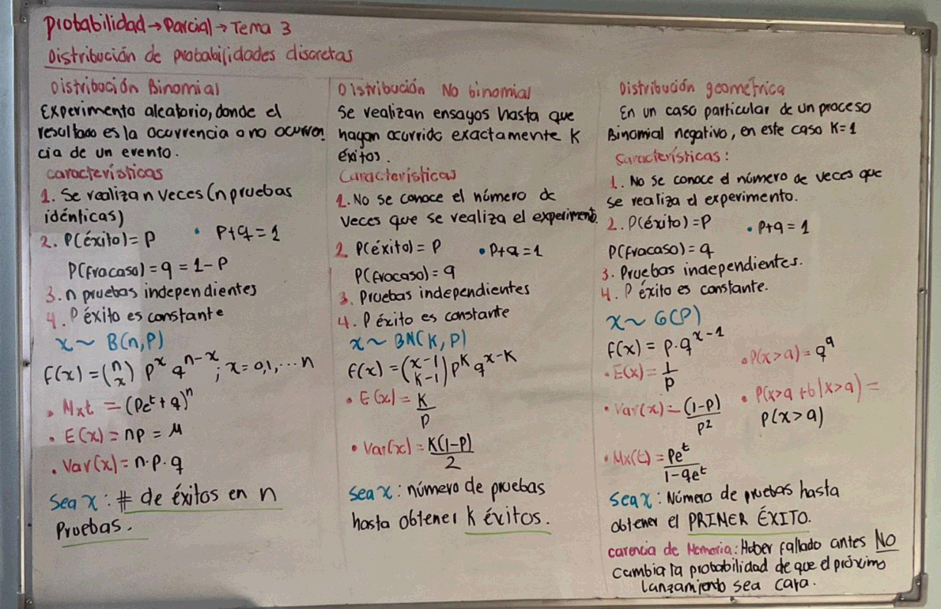 probabilidad → Parcial → Tema 3
Distribución de probabilidades discretas
Distribución Binomial
Experimento aleatorio, donde el
resultado es la ocurrencia o no ocurren
cia de un evento.
características
1. Se realiza n veces (n pruebas
idénticas)
2. P(éxito) = P • P+q = 1
P(fracaso) = q = 1 - P
3. n pruebas independientes
4. P éxito es constante
x ~ B(n,P)
f(x) = (n x) p^x q^(n-x) ; x = 0,1,...n
• Mxt = (Pe^t + q)^n
• E(x) = np = μ
• Var(x) = n·p·q
Sea x: # de éxitos en n
Pruebas.
Distribución No binomial
Se realizan ensayos hasta que
hayan ocurrido exactamente K
éxitos.
Características
1. No se conoce el número de
veces que se realiza el experimento.
2. P(éxito) = P • P+q = 1
P(fracaso) = q
3. Pruebas independientes
4. P éxito es constante
x ~ BN(K,P)
f(x) = (x-1 K-1) p^K q^(x-K)
• E(x) = K/P
• Var(x) = K(1-P)/2
Sea x: número de pruebas
hasta obtener K éxitos.
Distribución geométrica
En un caso particular de un proceso
Binomial negativo, en este caso K=1
Características:
1. No se conoce el número de veces que
se realiza el experimento.
2. P(éxito) = P • P+q = 1
P(fracaso) = q
3. Pruebas independientes.
4. P éxito es constante.
x ~ G(P)
f(x) = p·q^(x-1) • P(x>a) = q^a
• E(x) = 1/P
• Var(x) = (1-P)/P² • P(x>a+b|x>a) =
P(x>a)
• Mx(t) = Pe^t/1-qe^t
Sea x: Número de pruebas hasta
obtener el PRIMER ÉXITO.
carencia de Memoria: Haber fallado antes NO
cambia la probabilidad de que el próximo
lanzamiento sea cara.